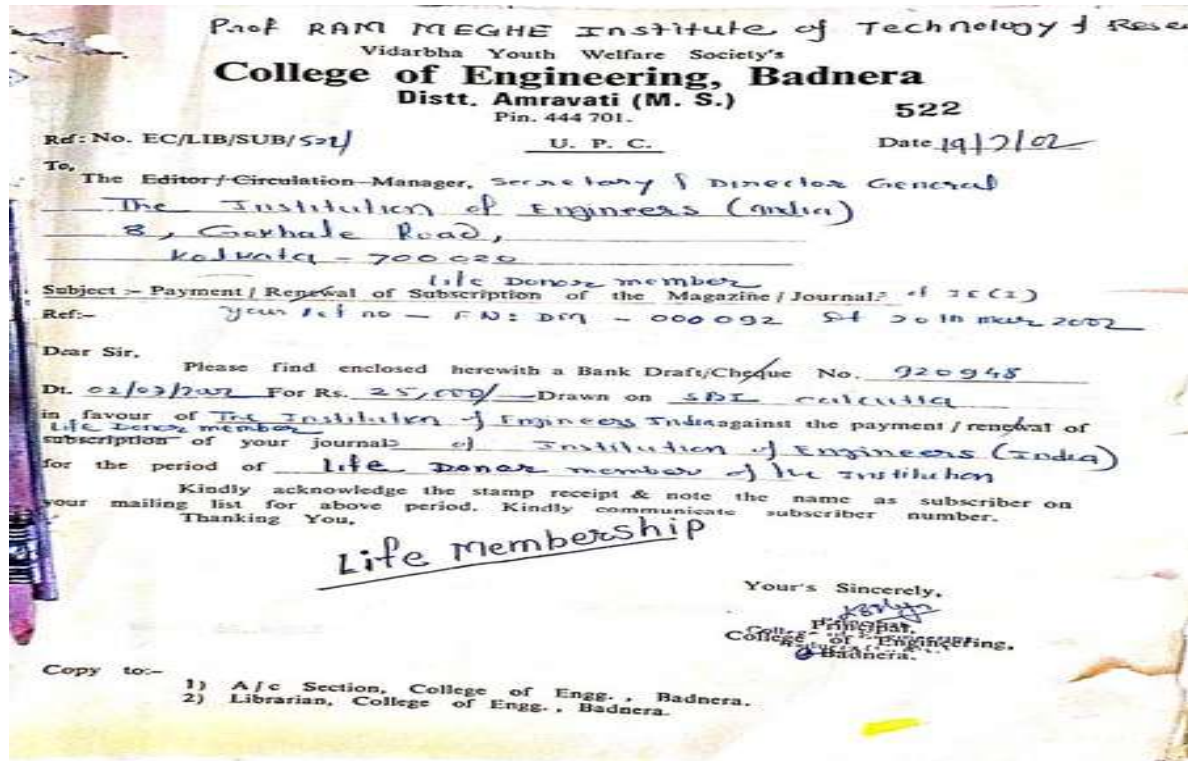 Prof RAM MEGHE Institute of Technology & Rese
Vidarbha Youth Welfare Society's
College of Engineering, Badnera
Distt. Amravati (M. S.)
Pin. 444 701.
522
Ref: No. EC/LIB/SUB/521/
U. P. C.
Date 19/7/02
To,
The Editor/Circulation Manager, Secretary & Director General
The Institution of Engineers (India)
8, Gokhale Road,
Kolkata - 700020
life Donor member
Subject :- Payment / Renewal of Subscription of the Magazine / Journal:
Ref:- your ref no - FN: DM - 000092 dt 20th 2002
Dear Sir,
Please find enclosed herewith a Bank Draft/Cheque No. 920948
Dt. For Rs. 25,000/- Drawn on SBI Calcutta
in favour of The Institution of Engineers India against the payment / renewal of
Life Donor member
subscription of your journals of Institution of Engineers (India)
for the period of life Donor member of the Institution
Kindly acknowledge the stamp receipt & note the name as subscriber on
your mailing list for above period. Kindly communicate subscriber number.
Thanking You,
Life Membership
Your's Sincerely,
Principal,
College of Engineering,
Badnera.
Copy to:-
1) A/c Section, College of Engg. , Badnera.
2) Librarian, College of Engg. , Badnera.